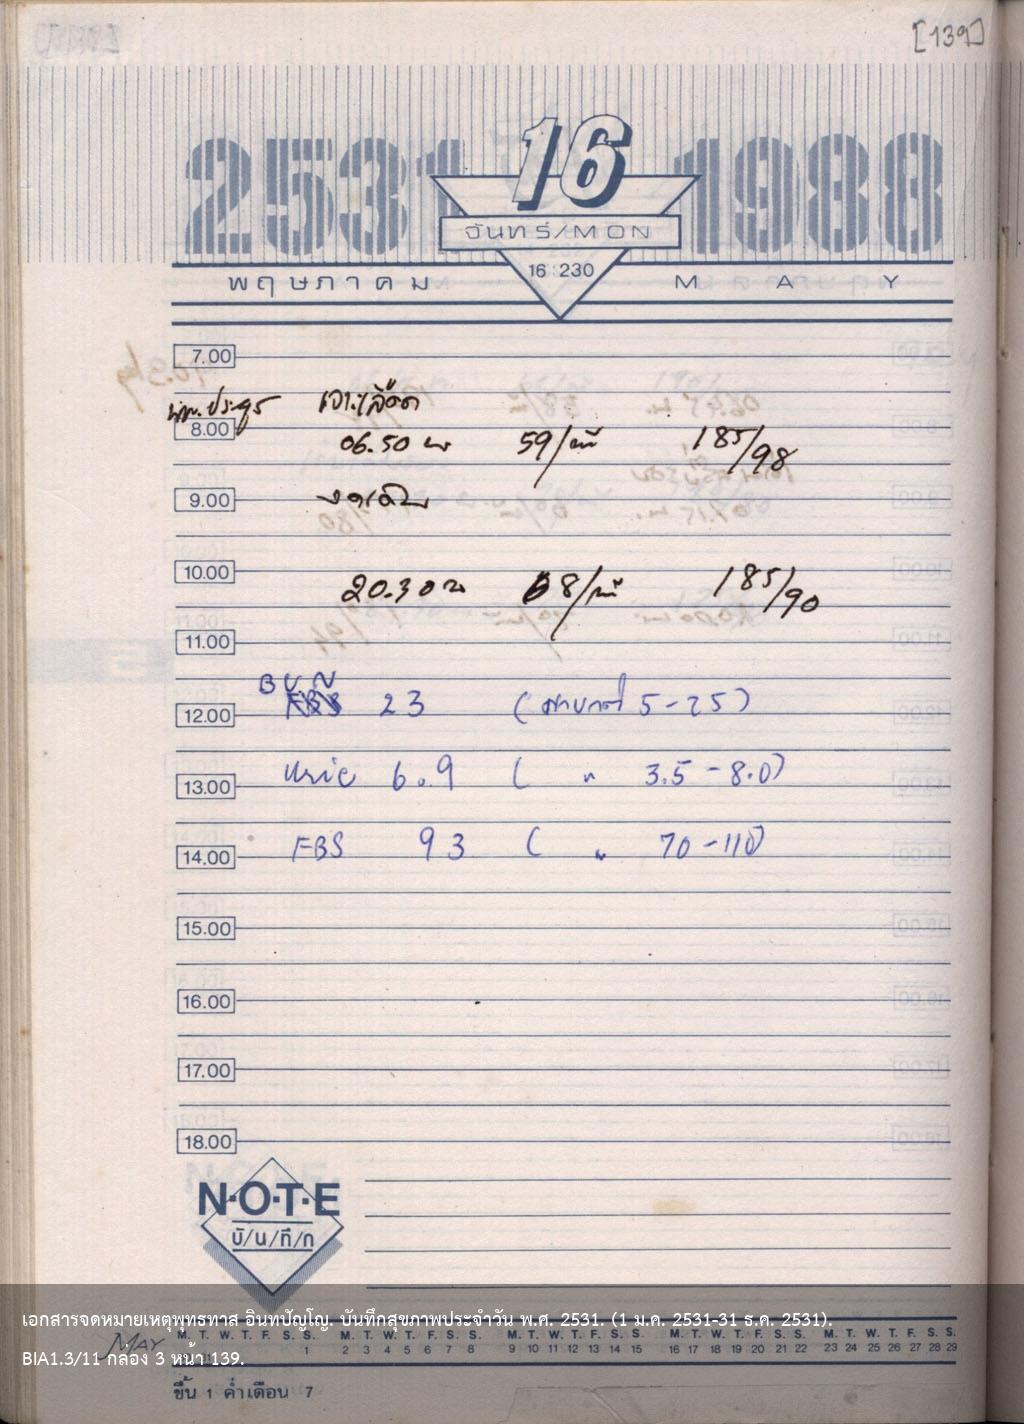 [139]
2531 16 1988
จันทร์/MON
16 230
พฤษภาคม MAY
7.00
นพ.ประยูร เจาะเลือด
8.00
06.50 น 59/นาที 185/98
9.00
20.30 น 68/นาที 185/90
10.00
11.00
BUN 23 (ค่าปกติ 5-25)
12.00
Uric 6.9 ( " 3.5-8.0)
13.00
FBS 93 ( " 70-110)
14.00
15.00
16.00
17.00
18.00
N·O·T·E
บั/น/ทึ/ก
เอกสารจดหมายเหตุพุทธทาส อินทปัญโญ. บันทึกสุขภาพประจำวัน พ.ศ. 2531. (1 ม.ค. 2531-31 ธ.ค. 2531).
MAY M. T. W. T. F. S. S. M. T. W. T. F. S. S. M. T. W. T. F. S. S. M. T. W. T. F. S. S. M. T. W. T. F. S. S.
1 2 3 4 5 6 7 8 9 10 11 12 13 14 15 16 17 18 19 20 21 22 23 24 25 26 27 28 29
BIA1.3/11 กล่อง 3 หน้า 139.
ขึ้น 1 ค่ำเดือน 7